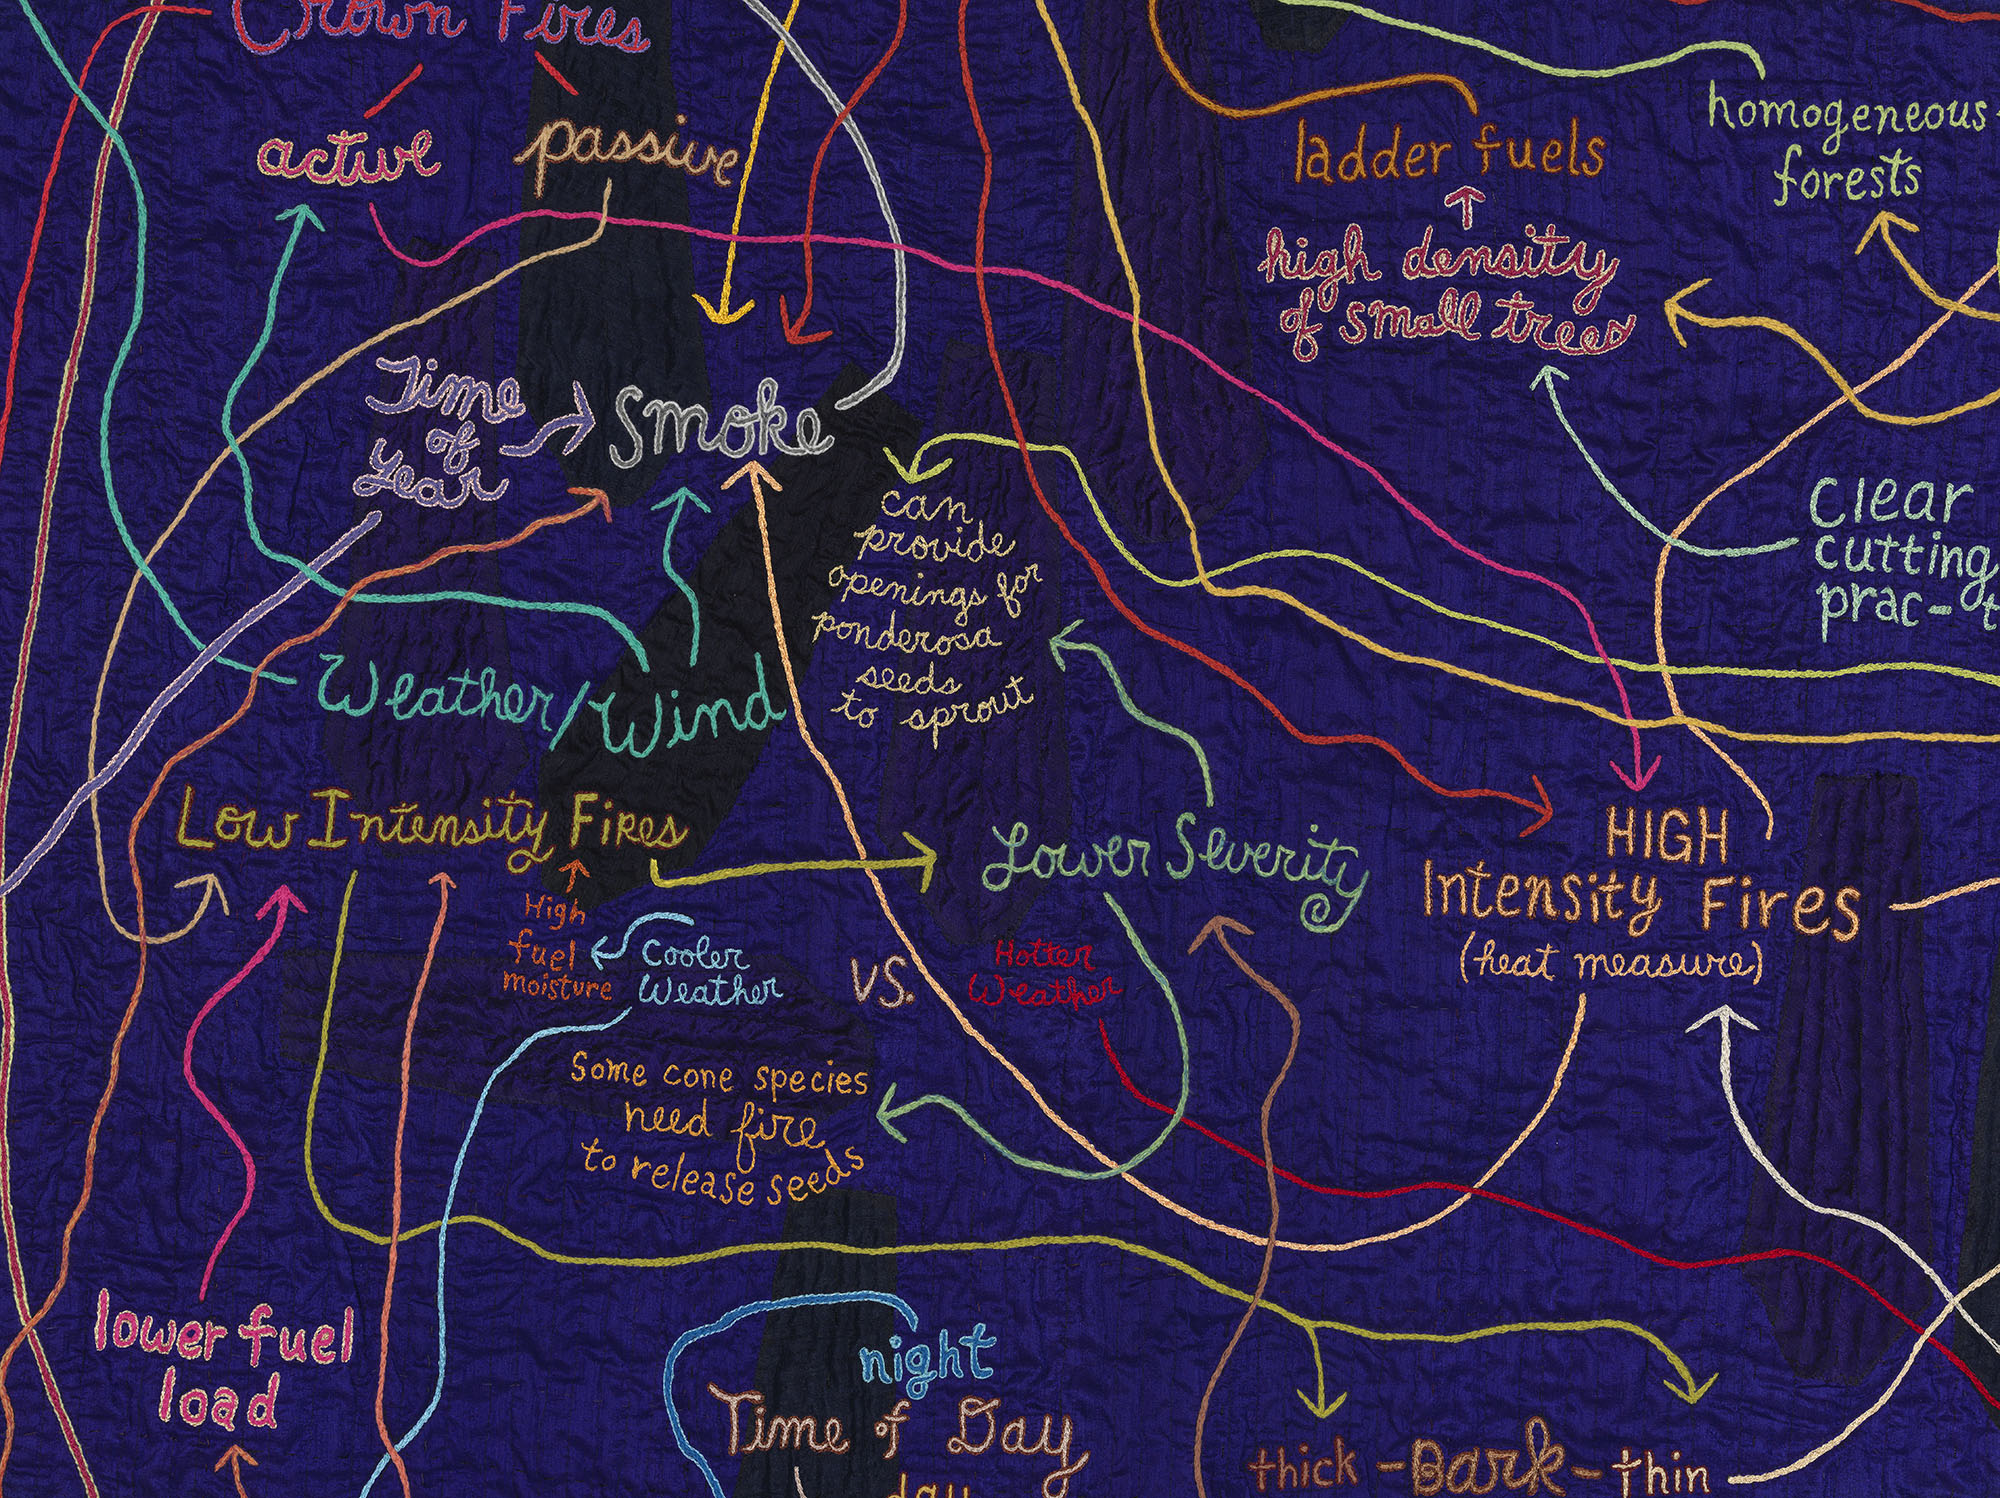 Crown Fires
active
passive
ladder fuels
high density
of small trees
homogeneous
forests
Time
of
Year
Smoke
can
provide
openings for
ponderosa
seeds
to sprout
Clear
cutting
prac-t
Weather/Wind
Low Intensity Fires
Lower Severity
HIGH
Intensity Fires
(heat measure)
High
fuel
moisture
Cooler
Weather
VS.
Hotter
Weather
Some cone species
need fire
to release seeds
lower fuel
load
night
Time of Day
day
thick - Bark - thin